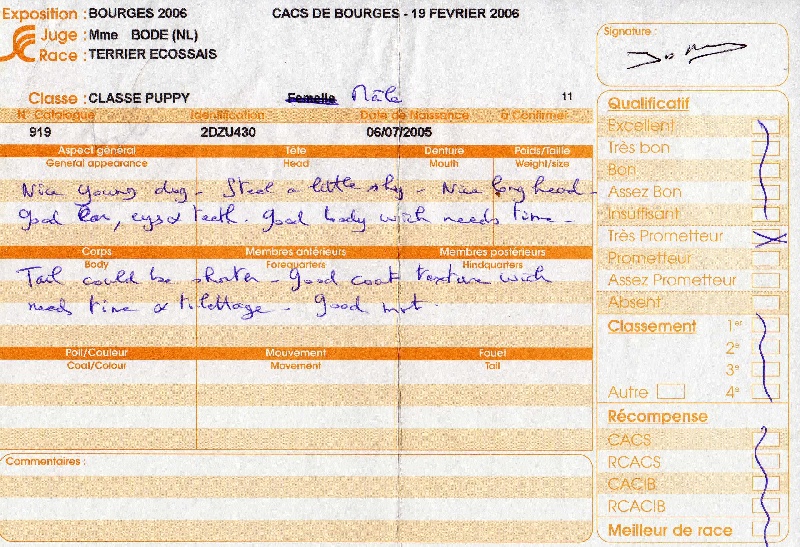 Exposition : BOURGES 2006 CACS DE BOURGES - 19 FEVRIER 2006
Juge : Mme BODE (NL)
Race : TERRIER ECOSSAIS
Signature :
Classe : CLASSE PUPPY Femelle Mâle 11
N° Catalogue Identification Date de Naissance à Confirmer
919 2DZU430 06/07/2005
Aspect général Tête Denture Poids/Taille
General appearance Head Mouth Weight/size
Nice young dog - Steel a little shy - Nice long head -
good ear, eyes & teeth. good body wich needs time -
Corps Membres antérieurs Membres postérieurs
Body Forequarters Hindquarters
Tail could be shorter - Good coat texture wich
needs time & toilettage - Good mvt.
Poil/Couleur Mouvement Fouet
Coat/Colour Movement Tail
Commentaires :
Qualificatif
Excellent
Très bon
Bon
Assez Bon
Insuffisant
Très Prometteur
Prometteur
Assez Prometteur
Absent
Classement 1er
2e
3e
Autre 4e
Récompense
CACS
RCACS
CACIB
RCACIB
Meilleur de race